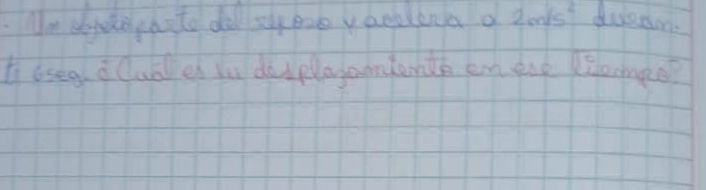 - Un objeto parte del reposo y acelera a 2m/s² duran-
te 6seg. ¿Cual es su desplazamiento en ese tiempo?